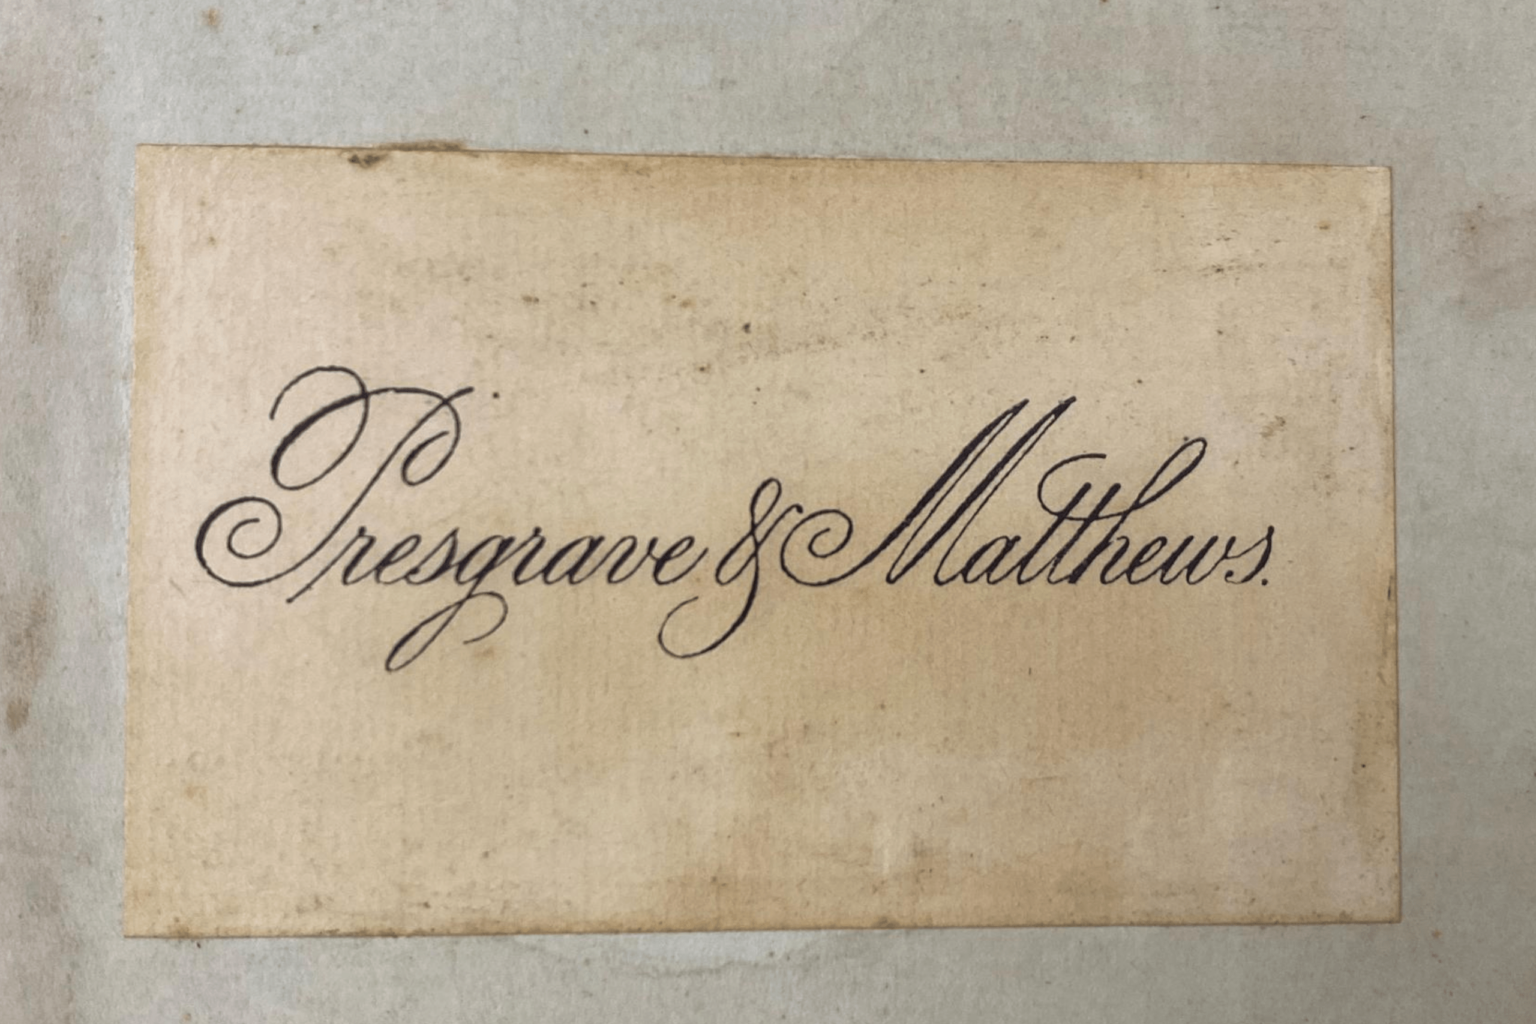 Presgrave & Matthews.